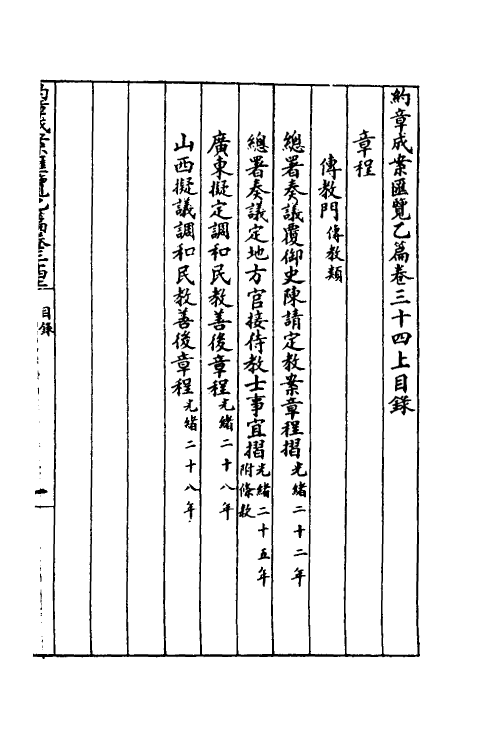 約章成案匯覽乙篇卷三十四上目錄
章程
傳教門傳教類
總署奏議覆御史陳請定教案章程摺光緒二十二年
總署奏議定地方官接待教士事宜摺光緒二十五年附條款
廣東擬定調和民教善後章程光緒二十八年
山西擬議調和民教善後章程光緒二十八年
目錄
一